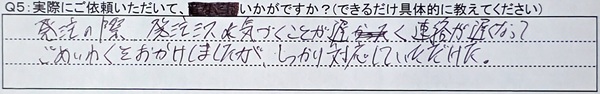 Q5:実際にご依頼いただいて、いかがですか?(できるだけ具体的に教えてください)
発注の際、発注ミスに気づくことが遅く連絡が遅くなって
ごめいわくをおかけしましたが、しっかり対応していただけた。